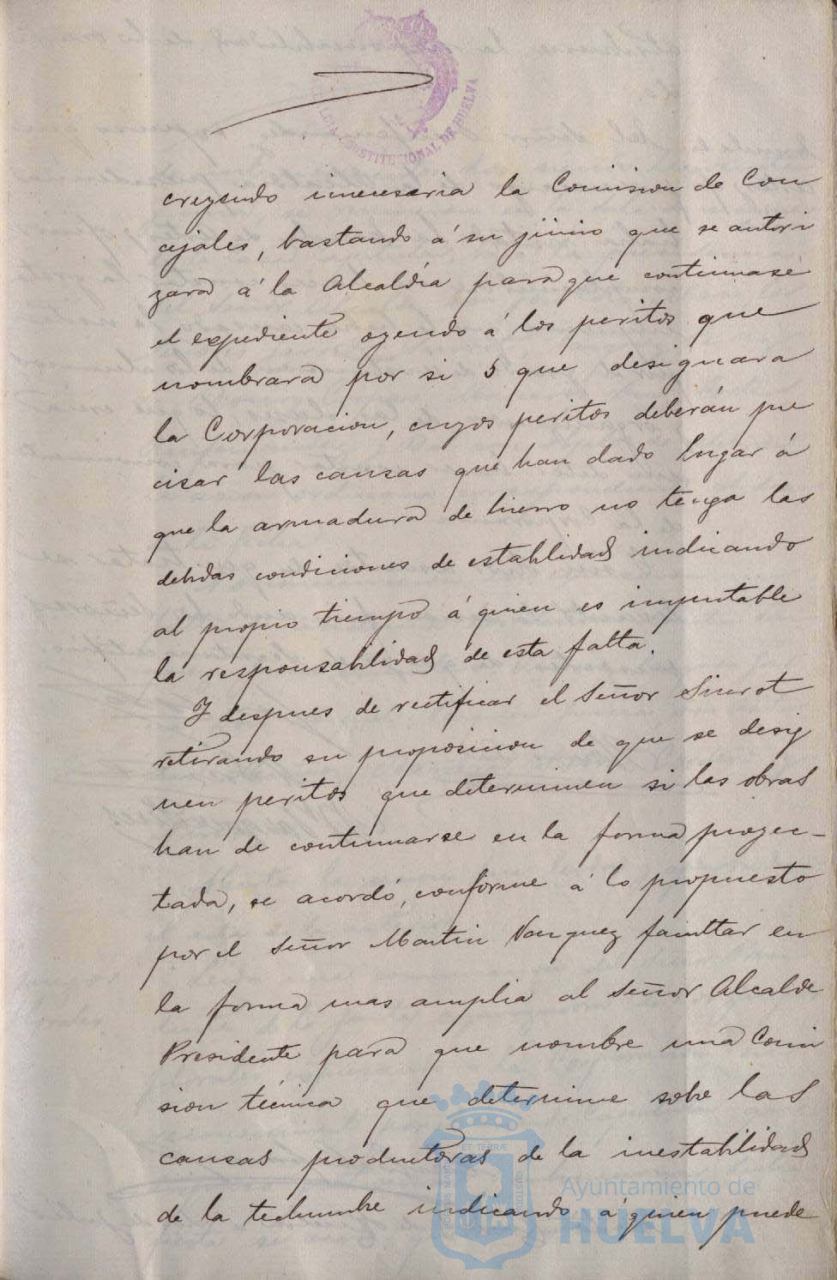 ALCALDIA CONSTITUCIONAL DE HUELVA
creyendo innecesaria la Comision de Con
cejales, bastando á su juicio que se autori
zara á la Alcaldía para que continuase
el expediente oyendo á los peritos que
nombrara por si ó que designara
la Corporacion, cuyos peritos deberán pre
cisar las causas que han dado lugar á
que la armadura de hierro no tenga las
debidas condiciones de estabilidad indicando
al propio tiempo á quien es imputable
la responsabilidad de esta falta.
Y despues de rectificar el Señor Siurot
retirando su proposicion de que se desig
nen peritos que determinen si las obras
han de continuarse en la forma proyec-
tada, se acordó, conforme á lo propuesto
por el Señor Martin Vazquez facultar en
la forma mas amplia al Señor Alcalde
Presidente para que nombre una Comi
sion técnica que determine sobre las
causas productoras de la inestabilidad
de la techumbre indicando á quien puede
Ayuntamiento de
HUELVA